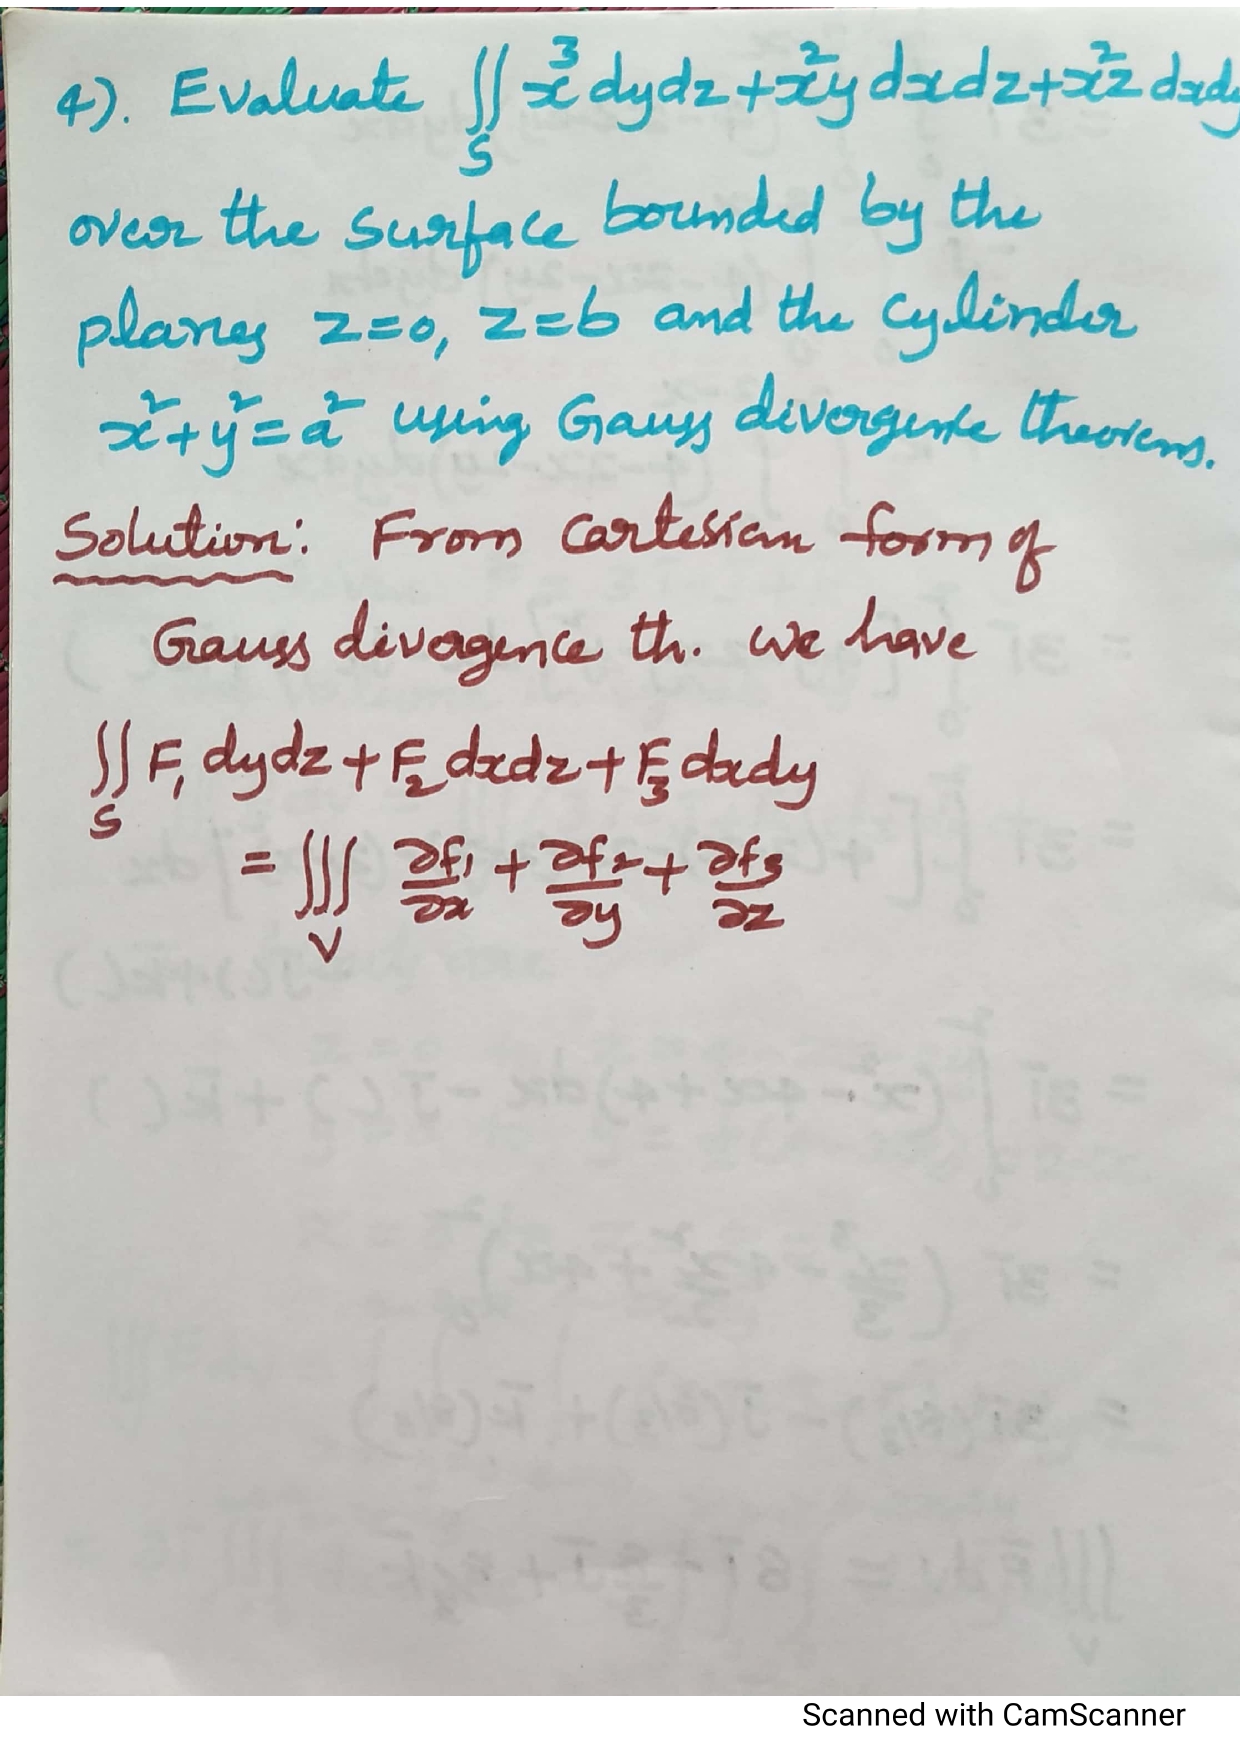 4). Evaluate ∬_S x³ dydz + x²y dxdz + x²z dxdy
over the surface bounded by the
planes z=0, z=b and the cylinder
x²+y²=a² using Gauss divergence theorem.
Solution: From cartesian form of
Gauss divergence th. we have
∬_S F₁ dydz + F₂ dxdz + F₃ dxdy
= ∭_V ∂f₁/∂x + ∂f₂/∂y + ∂f₃/∂z
Scanned with CamScanner